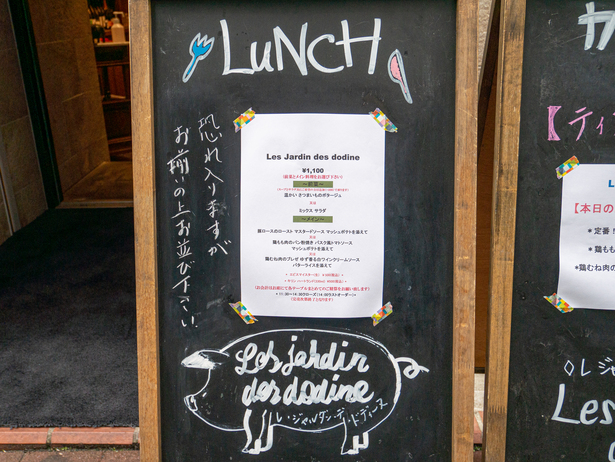 LUNCH
恐れ入りますが
お揃いの上お並び下さい
Les Jardin des dodine
¥1,100
(前菜とメイン料理をお選び下さい)
～前菜～
温かい さつまいものポタージュ
または
ミックス サラダ
～メイン～
豚ロースのロースト マスタードソース マッシュポテトを添えて
または
鶏もも肉のパン粉焼き バスク風トマトソース
マッシュポテトを添えて
または
鶏むね肉のブレゼ ゆず香る白ワインクリームソース
バターライスを添えて
Les jardin
des dodine
レ・ジャルダン・デ・ドディーヌ
【ティ
L
【本日の
＊定番
＊もち
＊鶏むね
◇レジ
Les